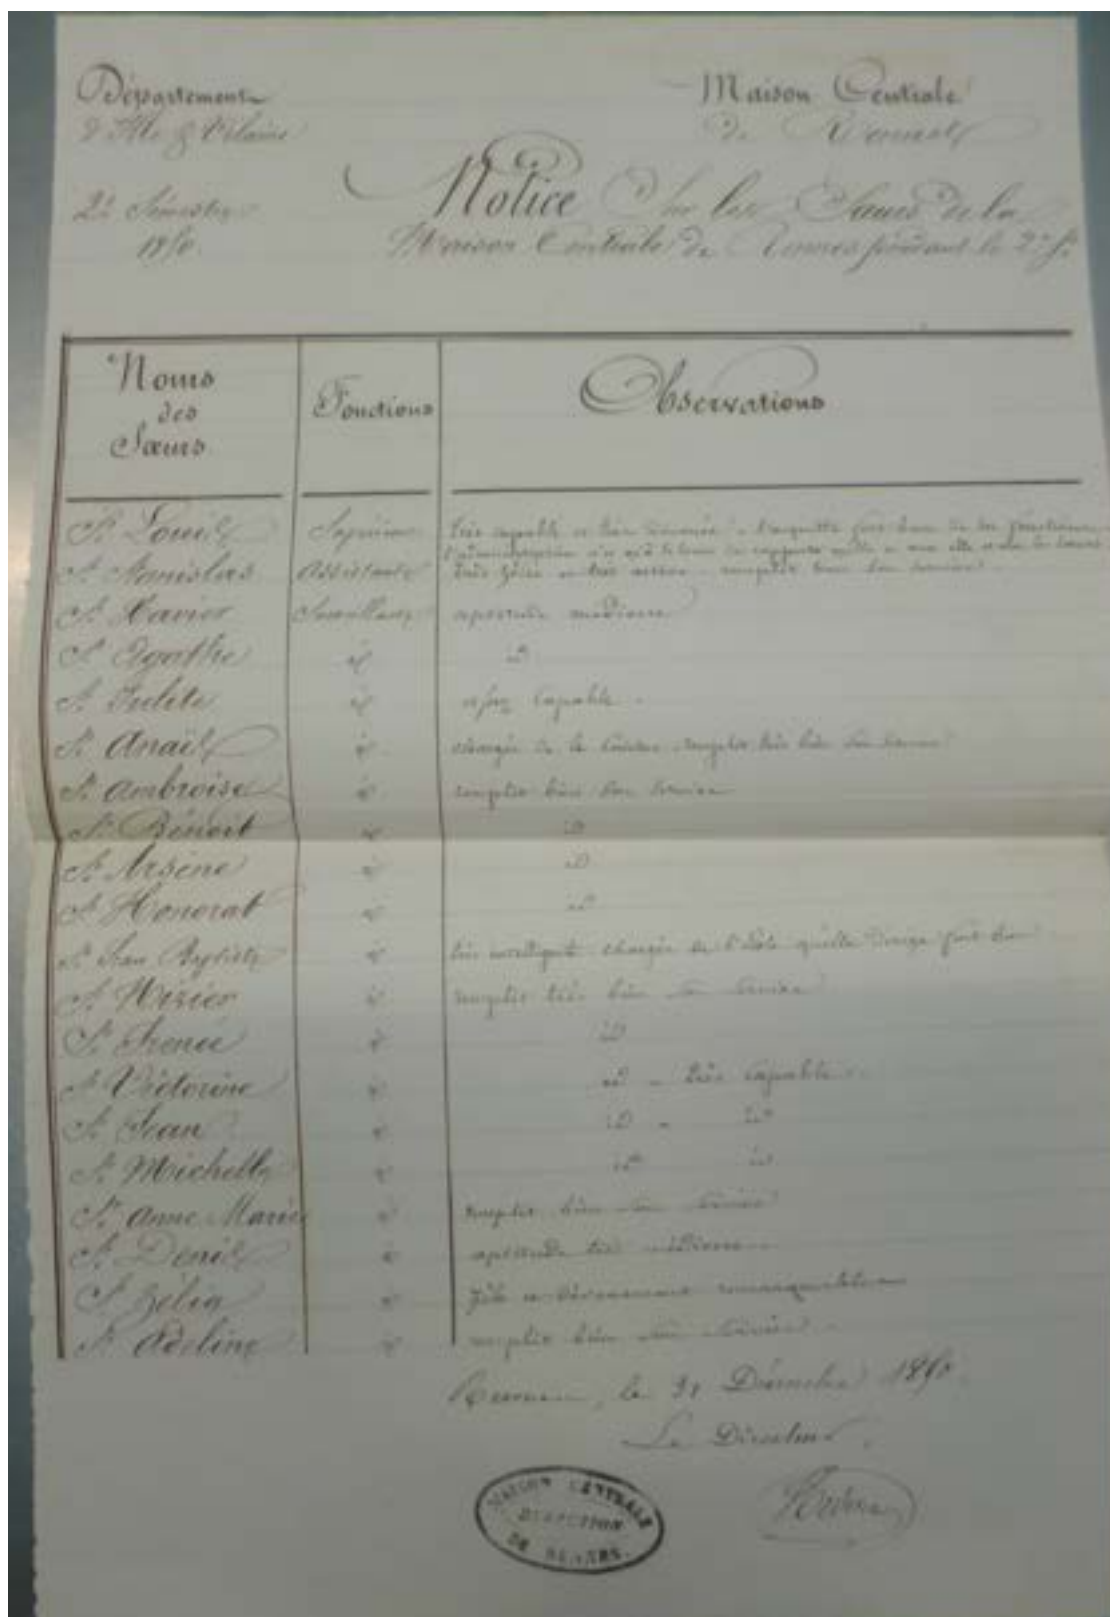 Département
d'Ille & Vilaine
Maison Centrale
de Rennes
2e Semestre
Notice Sur les Sœurs de la
Maison Centrale de Rennes pendant le 2e
Noms
des
Sœurs
Fonctions
Observations
Sr Louis Supérieure très capable et très dévouée s'acquitte fort bien de ses fonctions
l'administration n'a qu'à se louer des rapports qu'elle a avec elle et avec les Sœurs
Sr Stanislas Assistante très zélée et très active remplit bien son service
Sr Xavier Surveillante aptitude médiocre
Sr Agathe id id
Sr Julite id assez capable
Sr Anaïs id chargée de la remplit très bien son service
Sr Ambroise id remplit bien son service
Sr Bénoit id id
Sr Arsène id id
Sr Honorat id id
Sr Jean Baptiste id très intelligente chargée de l'école qu'elle dirige fort bien
Sr Nizier id remplit très bien son service
Sr Irenée id id
Sr Victorine id id très capable
Sr Jean id id id
Sr Michelle id id id
Sr Anne Marie id remplit bien son service
Sr Denis id aptitude très médiocre
Sr Zélia id zèle et dévouement remarquables
Sr Adeline id remplit bien son service
Rennes, le 31 Décembre
Le Directeur
MAISON CENTRALE
DIRECTION
DE RENNES.